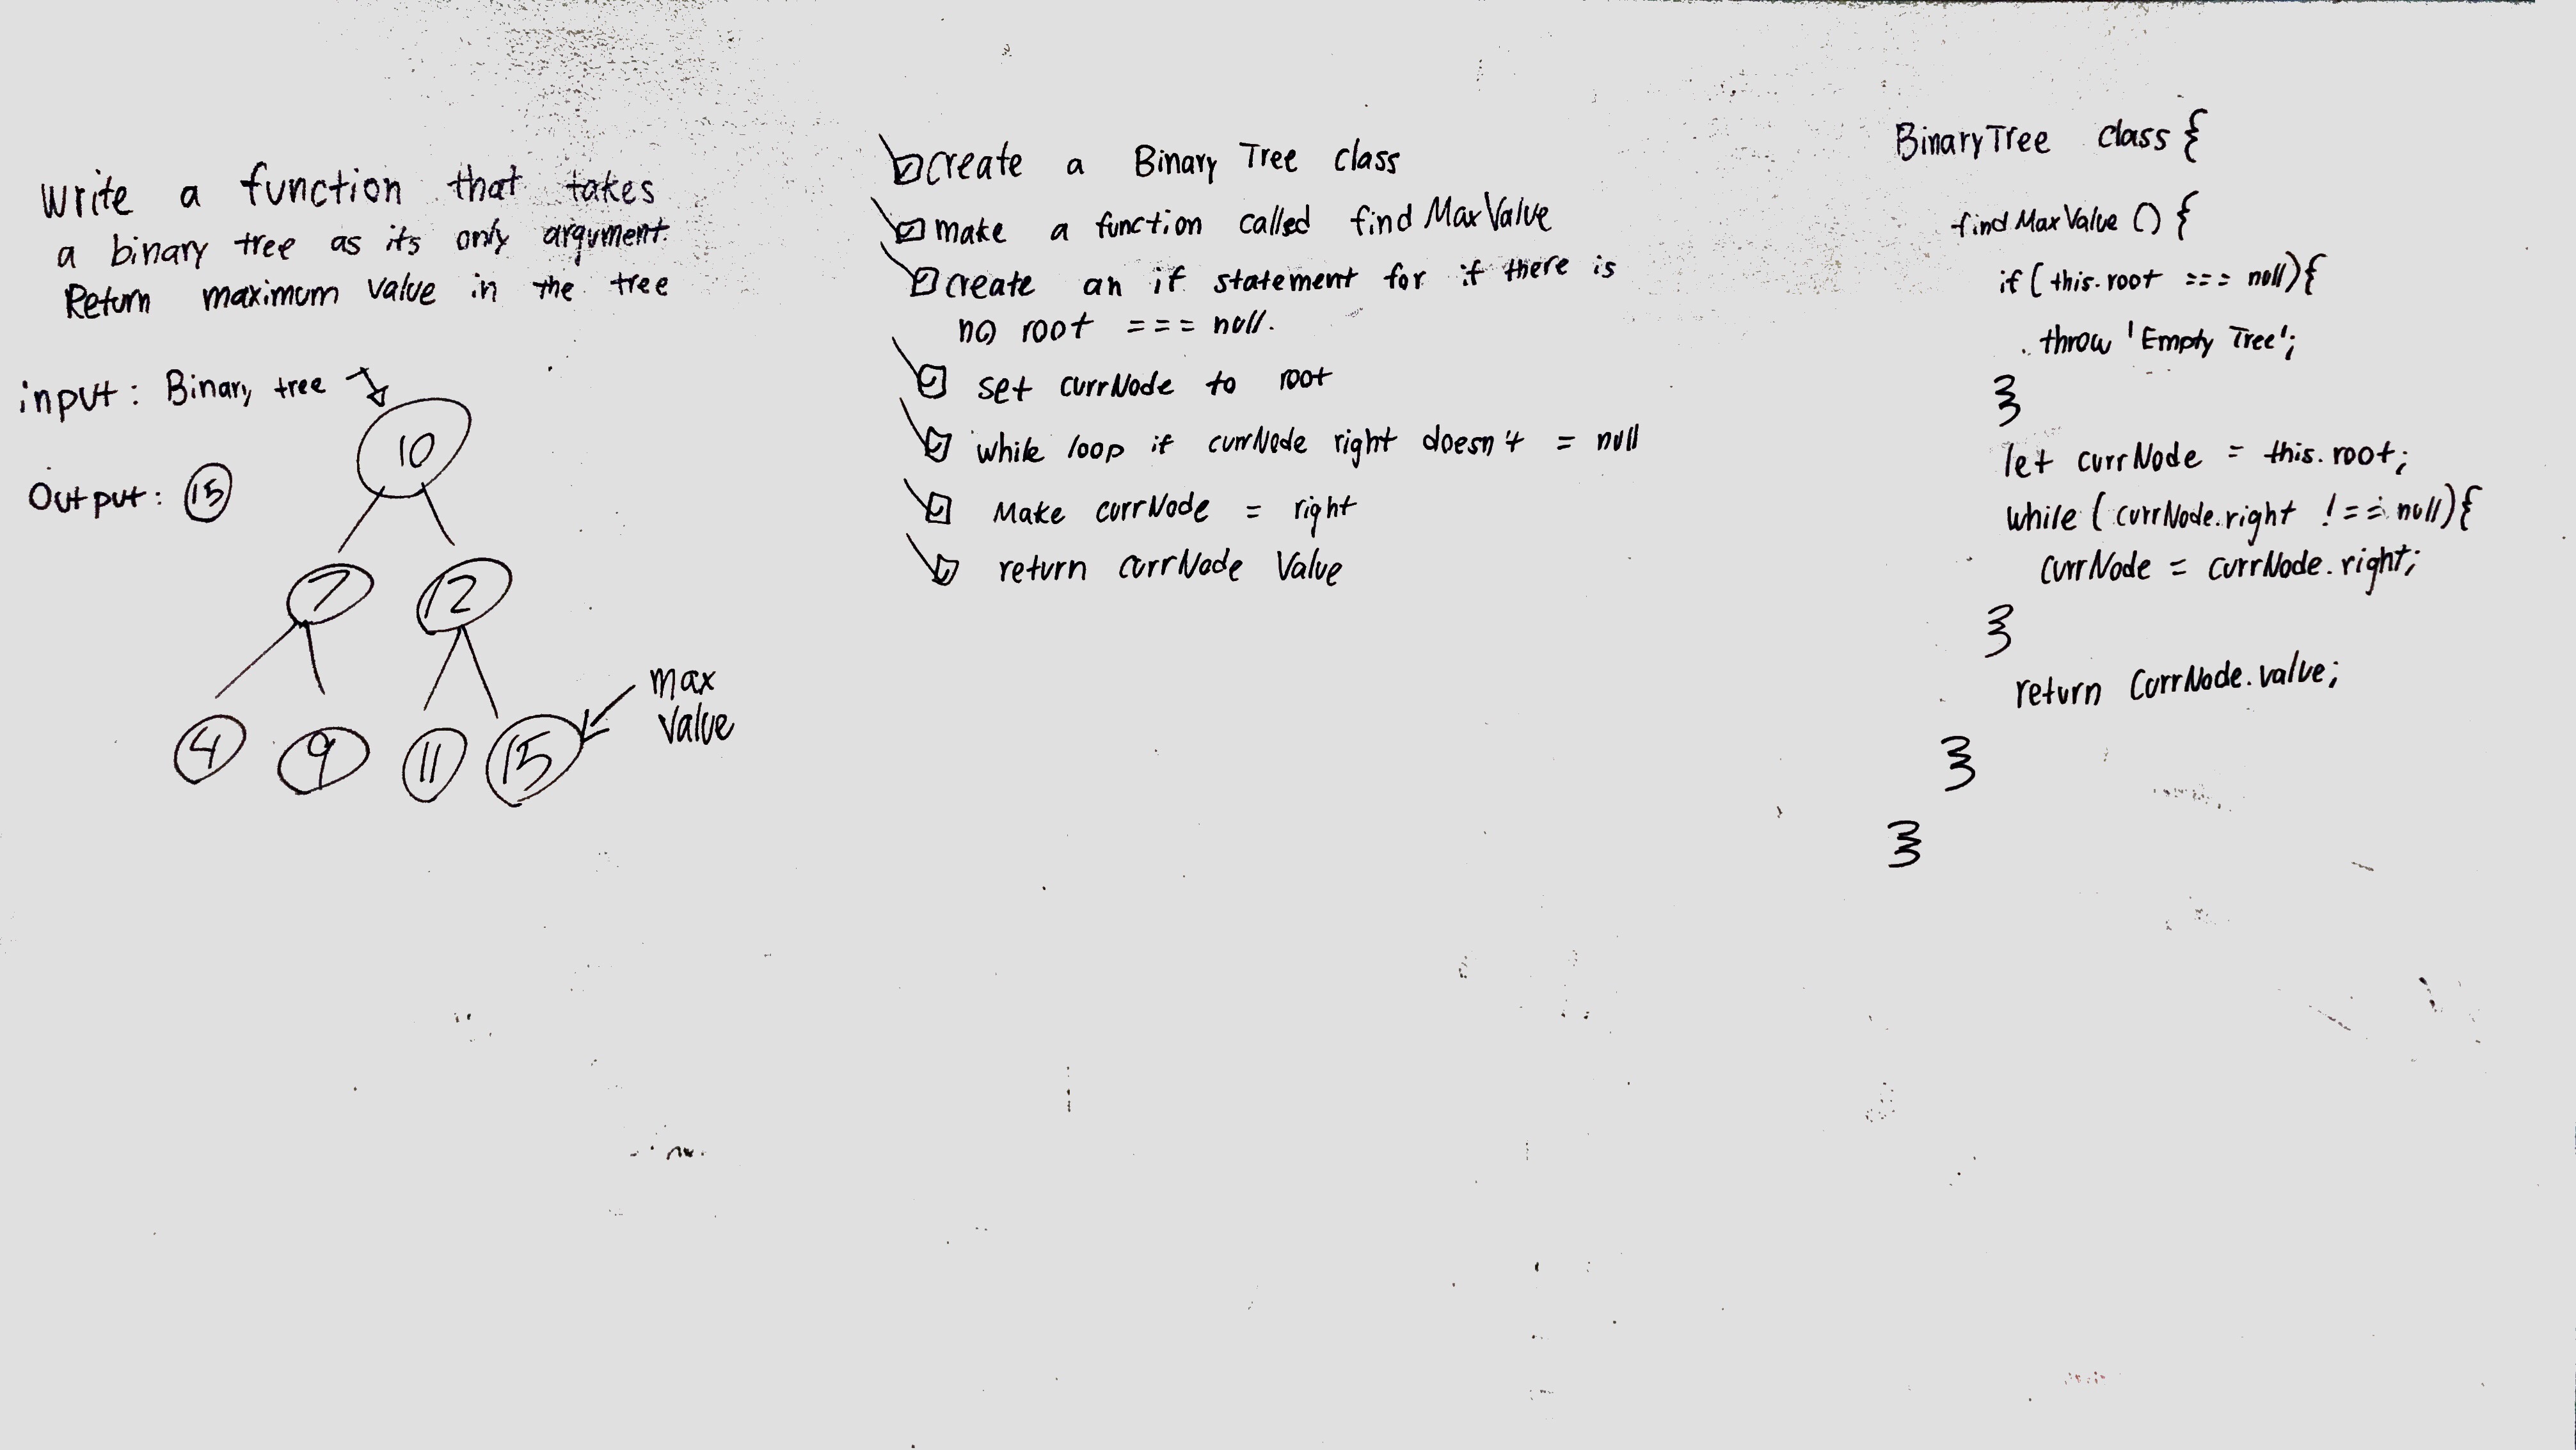 Write a function that takes
a binary tree as its only argument.
Return maximum value in the tree
input: Binary tree
10
Output: 15
7 12
max
value
4 9 11 15
create a Binary Tree class
make a function called find MaxValue
create an if statement for if there is
no root === null.
set currNode to root
while loop if currNode right doesn't = null
Make currNode = right
return currNode Value
BinaryTree class {
find MaxValue () {
if (this.root === null){
throw 'Empty Tree';
}
let currNode = this.root;
while (currNode.right !== null){
currNode = currNode.right;
}
return CurrNode.value;
}
}